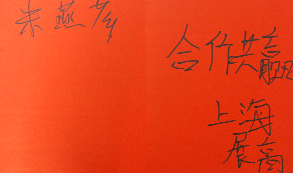 朱燕萍
合作共赢
上海
展高